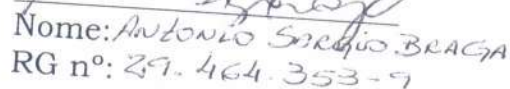 Nome: ANTONIO SERGIO BRAGA
RG nº: 29.464.353-9